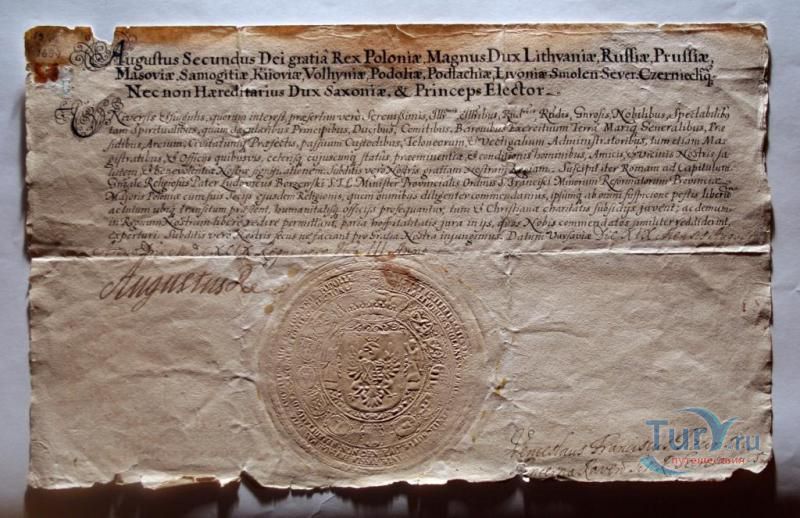 1699
Augustus Secundus Dei gratiâ Rex Poloniæ, Magnus Dux Lithvaniæ, Rußiæ, Prussiæ,
Masoviæ, Samogitiæ, Kiioviæ, Volhyniæ, Podoliæ, Podlachiæ, Livoniæ, Smolen: Sever: Czerniechiq;
Nec non Hæreditarius Dux Saxoniæ, & Princeps Elector.
Universis & singulis, quorum interest, præsertim verò Serenissimis, Illmis Illribus, Rndmis Rndis, Gnrosis, Nobilibus, Spectabilib9
tam Spiritualibus, quam Sæcularibus Principibus, Ducibus, Comitibus, Baronibus Exercituum Terrâ Mariq; Generalibus, Præ
sidibus, Arcium, Civitatum Præfectis, passuum Custodibus, Teloneorum & Vectigalium Administratoribus, tum etiam Ma
gistratibus, & Officijs quibusvis, ceterisq; cujuscunq; statûs, præeminentiæ & conditionis hominibus, Amicis & Vicinis Nostris sa
lutem & benevolentiæ Nostræ significationem: Subditis verò Nostris gratiam Nostram Regiam. Suscipit iter Romam ad Capitulum
Gnrale Religiosus Pater Ludovicus Borzenski S.T.L. Minister Provincialis Ordinis S. Francisci Minorum Reformatorum Provinciæ
Majoris Poloniæ cum suis Socijs ejusdem Religionis, quem omnibus diligenter commendamus, ipsumq; ab omni suspicione pestis liberū
actutum ubiq; transitum præbeant, humanitatisq; officijs prosequantur, tum & Christianæ charitatis subsidijs juvent, ac demum
in Regnum Nostrum liberè redire permittant, parea hospitalitatis jura in ijs, quos Nobis commendatos similiter reddiderint,
experturi. Subditis verò Nostris secus ne faciant pro Gratia Nostra injungimus. Datum Varsaviæ Die XIX Mensis
Augustus Rex
Franciscus
TurY.ru
путешествия